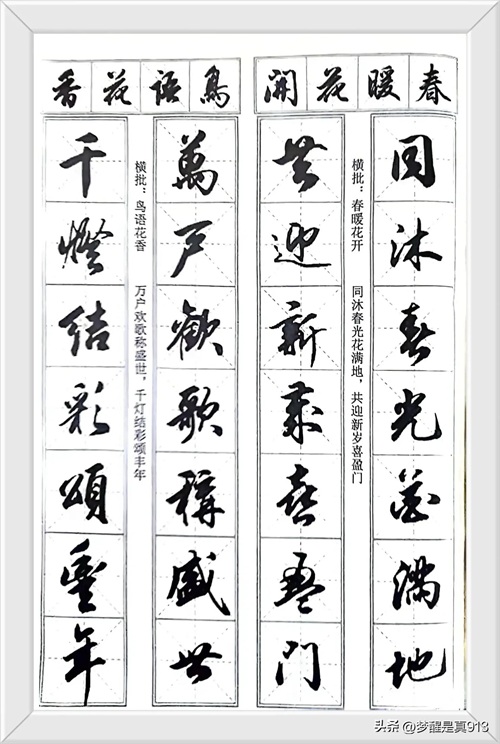 春暖花開
同沐春光花滿地
橫批：春暖花开
同沐春光花满地，共迎新岁喜盈门
共迎新歲喜盈门
鳥語花香
萬戶歡歌稱盛世
橫批：鸟语花香
万户欢歌称盛世，千灯结彩颂丰年
千燈結彩頌豐年
头条 @梦醒是真913